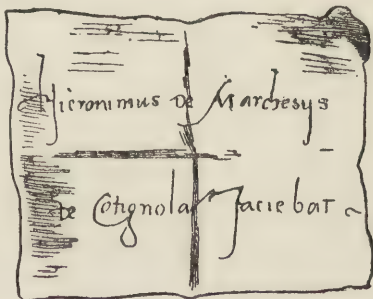 Hieronimus De Marchesys
De Cotignola Faciebat